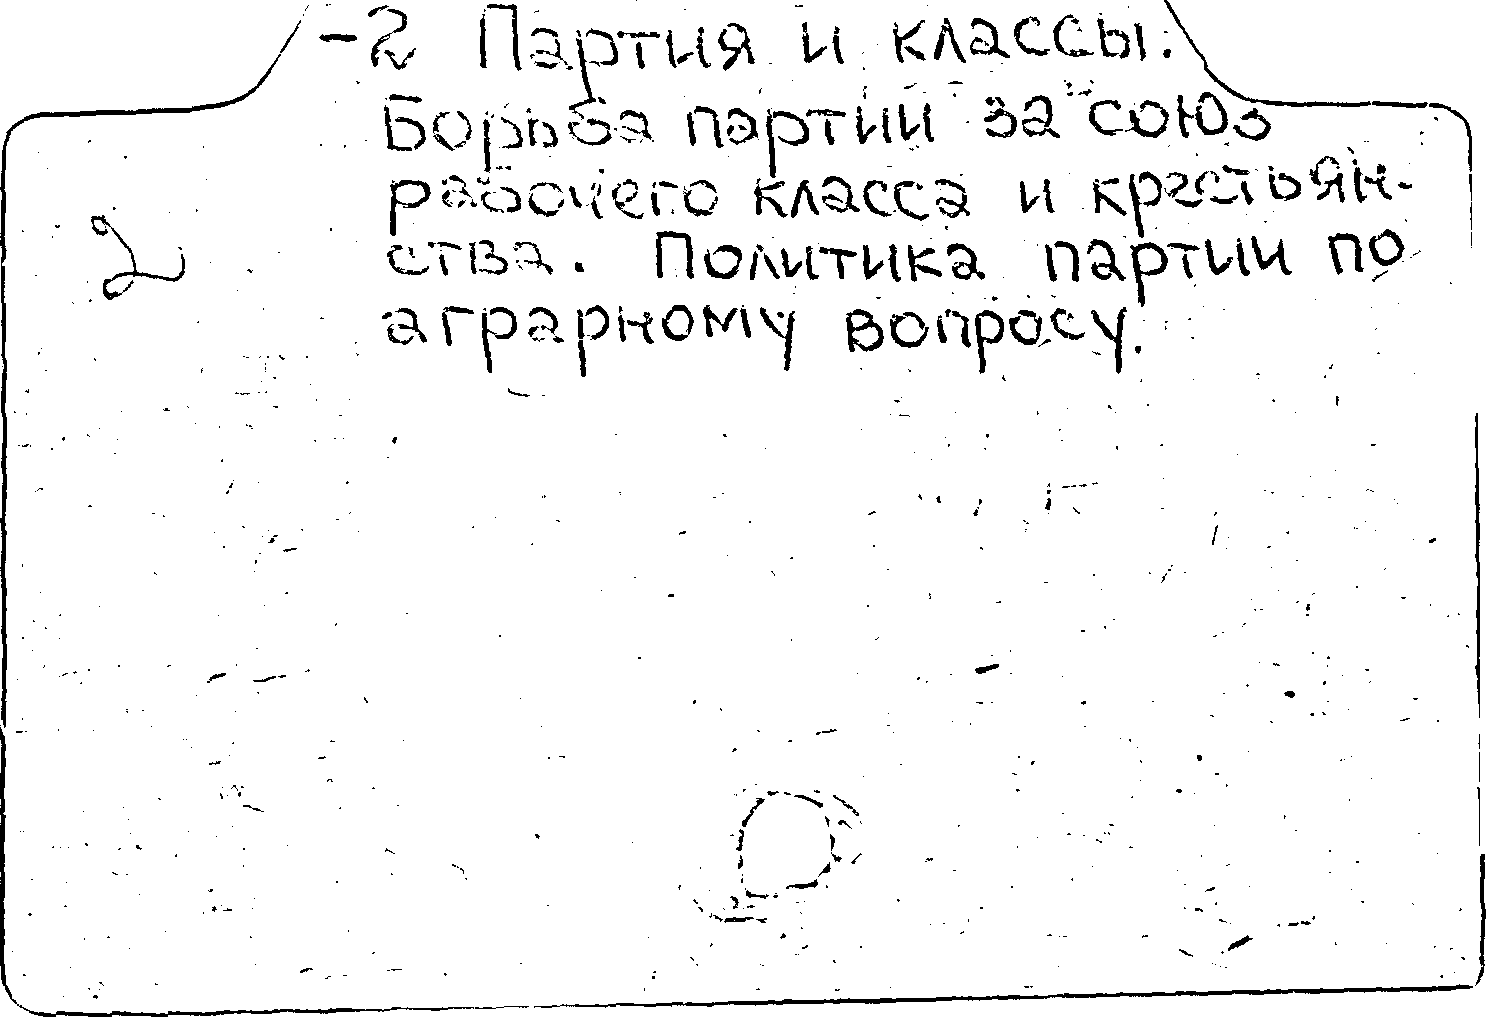 -2 Партия и классы.
Борьба партии за союз
рабочего класса и крестьян-
ства. Политика партии по
аграрному вопросу.
2